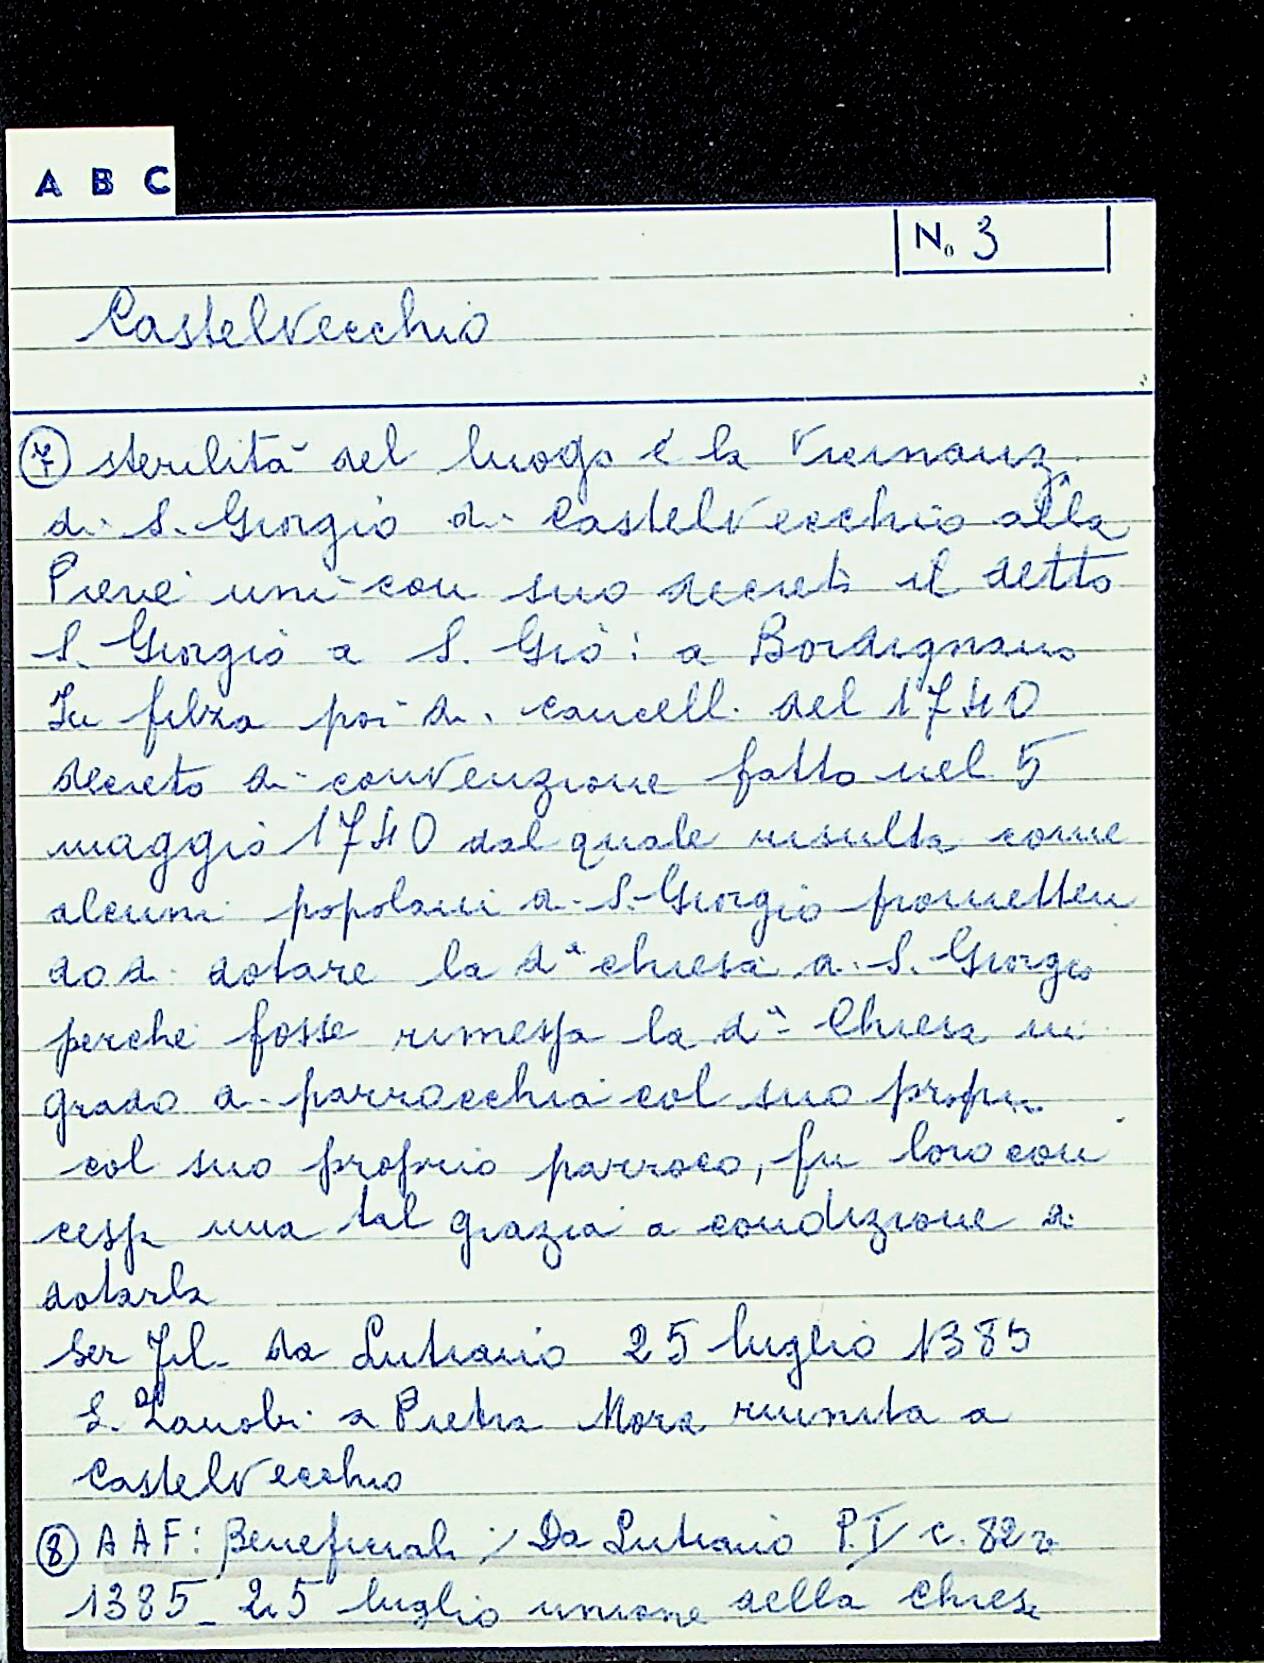 A B C
N. 3
Castelvecchio
7 sterilità del luogo e la vicinanz.
di S. Giorgio di Castelvecchio alla
Pieve unì con suo decreto il detto
S. Giorgio a S. Gio: a Bordignano
In filza poi di cancell. del 1740
decreto di convenzione fatto nel 5
maggio 1740 dal quale risulta come
alcuni popolani di S. Giorgio prometten
do di dotare la dª chiesa di S. Giorgio
perché fosse rimessa la dª Chiesa in
grado di parrocchia col suo propri.
col suo proprio parroco, fu loro con
cessa una tal grazia a condizione di
dotarla
Ser Fil. da Lutiano 25 luglio 1385
S. Zanobi a Pietra Mora riunita a
Castelvecchio
8 A A F: Beneficiali / Da Lutiano P. I c. 82
1385 - 25 luglio unione della Chiesa